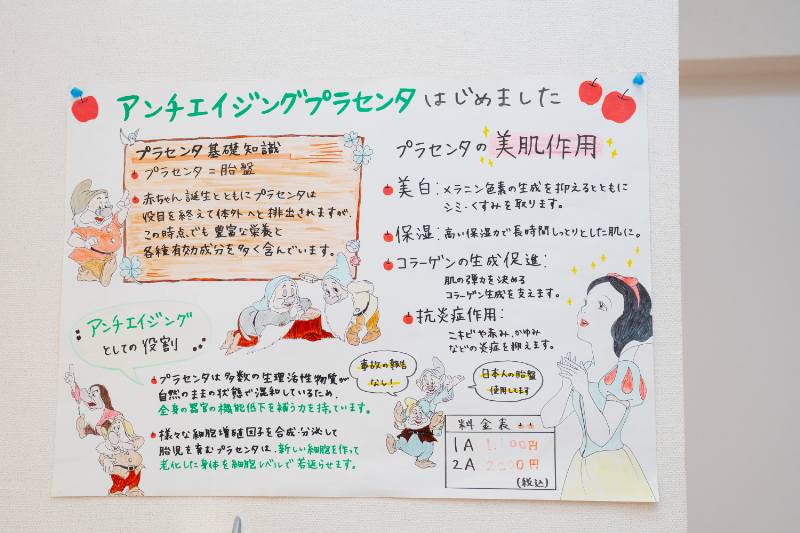 アンチエイジングプラセンタ はじめました
プラセンタ基礎知識
プラセンタ=胎盤
赤ちゃん誕生とともにプラセンタは
役目を終えて体外へと排出されますが、
この時点でも豊富な栄養と
各種有効成分を多く含んでいます。
プラセンタの美肌作用
美白:メラニン色素の生成を抑えるとともに
シミ・くすみを取ります。
保湿:高い保湿力で長時間しっとりとした肌に。
コラーゲンの生成促進:
肌の弾力を決める
コラーゲン生成を支えます。
抗炎症作用:
ニキビや赤み、かゆみ
などの炎症を抑えます。
アンチエイジング
としての役割
プラセンタは多数の生理活性物質が
自然のままの状態で混和しているため、
全身の器官の機能低下を補う力を持っています。
様々な細胞増殖因子を合成・分泌して
胎児を育むプラセンタは、新しい細胞を作って
老化した身体を細胞レベルで若返らせます。
事故の報告
なし!
日本人の胎盤
使用してます
料金表
1A 1,100円
2A 2200円
(税込)